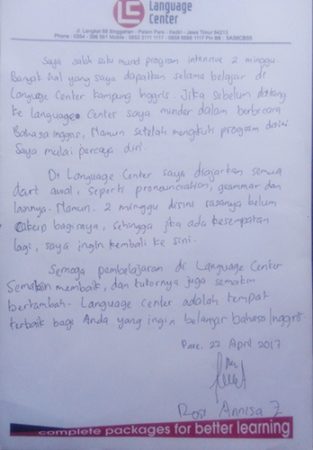 Language
Center
Jl. Langkat 88 Singgahan - Palem Pare - Kediri - Jawa Timur 64213
Saya salah satu murid program intensive 2 minggu
Banyak hal yang saya dapatkan selama belajar di
Language Center Kampung Inggris. Jika sebelum datang
ke language Center saya minder dalam berbicara
Bahasa Inggris, Namun setelah mengikuti program disini
Saya mulai percaya diri.
Di Language Center saya diajarkan semua
dari awal, seperti pronounciation, grammar dan
lainnya. Namun. 2 minggu disini rasanya belum
cukup bagi saya, sehingga jika ada kesempatan
lagi, saya ingin kembali ke sini.
Semoga pembelajaran di Language Center
Semakin membaik, dan tutornya juga semakin
bertambah. Language Center adalah tempat
terbaik bagi Anda yang ingin belajar bahasa Inggris.
Pare, 22 April 2017
Annisa Z
complete packages for better learning